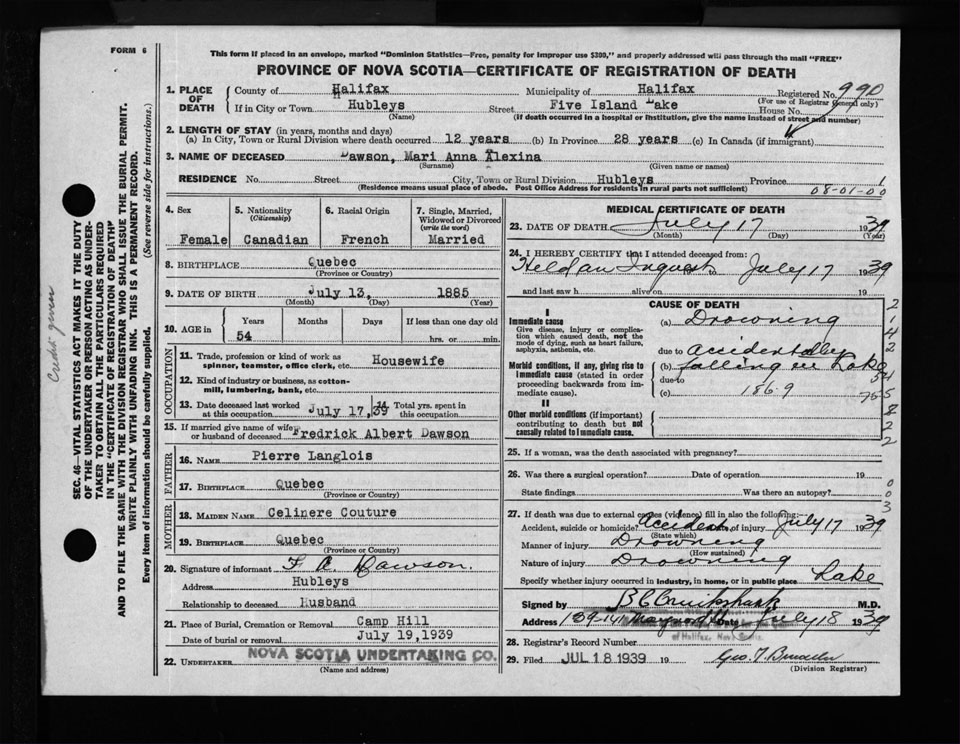 FORM 6
This form if placed in an envelope, marked "Dominion Statistics—Free, penalty for improper use $300," and properly addressed will pass through the mail "FREE"
PROVINCE OF NOVA SCOTIA—CERTIFICATE OF REGISTRATION OF DEATH
1. PLACE OF DEATH County of Halifax Municipality of Halifax Registered No. 990
(For use of Registrar General only)
If in City or Town Hubleys Street Five Island Lake House No.
(Name) (If death occurred in a hospital or institution, give the name instead of street and number)
2. LENGTH OF STAY (in years, months and days)
(a) In City, Town or Rural Division where death occurred 12 years (b) In Province 28 years (c) In Canada (if immigrant)
3. NAME OF DECEASED Dawson, Mari Anna Alexina
(Surname) (Given name or names)
RESIDENCE No. Street City, Town or Rural Division Hubleys Province 1
(Residence means usual place of abode. Post Office Address for residents in rural parts not sufficient) 08-01-00
4. Sex 5. Nationality (Citizenship) 6. Racial Origin 7. Single, Married, Widowed or Divorced (write the word)
Female Canadian French Married
8. BIRTHPLACE Quebec
(Province or Country)
9. DATE OF BIRTH July 13, 1885
(Month) (Day) (Year)
10. AGE in Years Months Days If less than one day old
54 hrs. or min.
OCCUPATION
11. Trade, profession or kind of work as spinner, teamster, office clerk, etc. Housewife
12. Kind of industry or business, as cotton-mill, lumbering, bank, etc.
13. Date deceased last worked at this occupation July 17, 39 14 Total yrs. spent in this occupation
15. If married give name of wife or husband of deceased Fredrick Albert Dawson
FATHER
16. NAME Pierre Langlois
17. BIRTHPLACE Quebec
(Province or Country)
MOTHER
18. MAIDEN NAME Celinere Couture
19. BIRTHPLACE Quebec
(Province or Country)
20. Signature of informant F. A. Dawson.
Address Hubleys
Relationship to deceased Husband
21. Place of Burial, Cremation or Removal Camp Hill
Date of burial or removal July 19, 1939
22. UNDERTAKER NOVA SCOTIA UNDERTAKING CO.
(Name and address)
MEDICAL CERTIFICATE OF DEATH
23. DATE OF DEATH July 17 1939
(Month) (Day) (Year)
24. I HEREBY CERTIFY that I attended deceased from:
Held an Inquest to July 17 1939
and last saw h alive on 19
CAUSE OF DEATH
I
Immediate cause (a) Drowning
Give disease, injury or complication which caused death, not the mode of dying, such as heart failure, asphyxia, asthenia, etc.
due to accidentally
Morbid conditions, if any, giving rise to immediate cause (stated in order proceeding backwards from immediate cause). (b) falling in Lake
due to
(c) 186-9
II
Other morbid conditions (if important) contributing to death but not causally related to immediate cause.
25. If a woman, was the death associated with pregnancy?
26. Was there a surgical operation? Date of operation 19
State findings Was there an autopsy?
27. If death was due to external causes (violence) fill in also the following:
Accident, suicide or homicide? Accident Date of injury July 17 1939
(State which)
Manner of injury Drowning
(How sustained)
Nature of injury Drowning
Specify whether injury occurred in industry, in home, or in public place Lake
Signed by B C Cruikshank M.D.
Address 139-141 Maynard Date July 18 1939
28. Registrar's Record Number
of Halifax, Nova Scotia
29. Filed JUL 18 1939 19 Geo. T.
(Division Registrar)
SEC. 46—VITAL STATISTICS ACT MAKES IT THE DUTY
OF THE UNDERTAKER OR PERSON ACTING AS UNDER-
TAKER TO OBTAIN ALL THE PARTICULARS REQUIRED
IN THE "CERTIFICATE OF REGISTRATION OF DEATH"
AND TO FILE THE SAME WITH THE DIVISION REGISTRAR WHO SHALL ISSUE THE BURIAL PERMIT.
WRITE PLAINLY WITH UNFADING INK. THIS IS A PERMANENT RECORD.
Every item of information should be carefully supplied. (See reverse side for instructions.)
Credit given